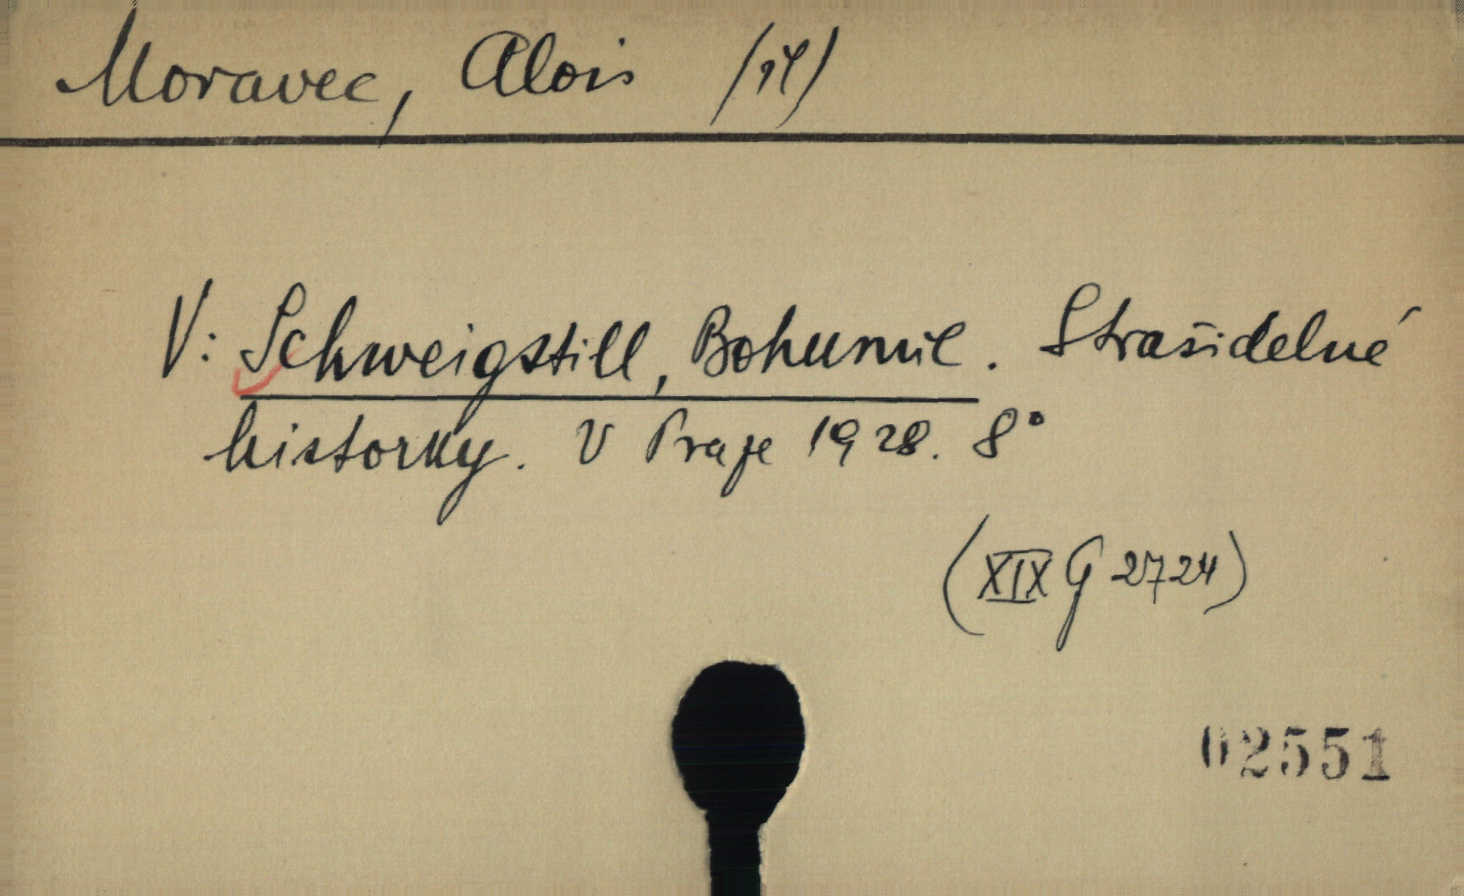 Moravec, Alois (il)
V: Schweigstill, Bohumil. Strašidelné
historky. V Praze 1928. 8°
(XIX G 2724)
02551